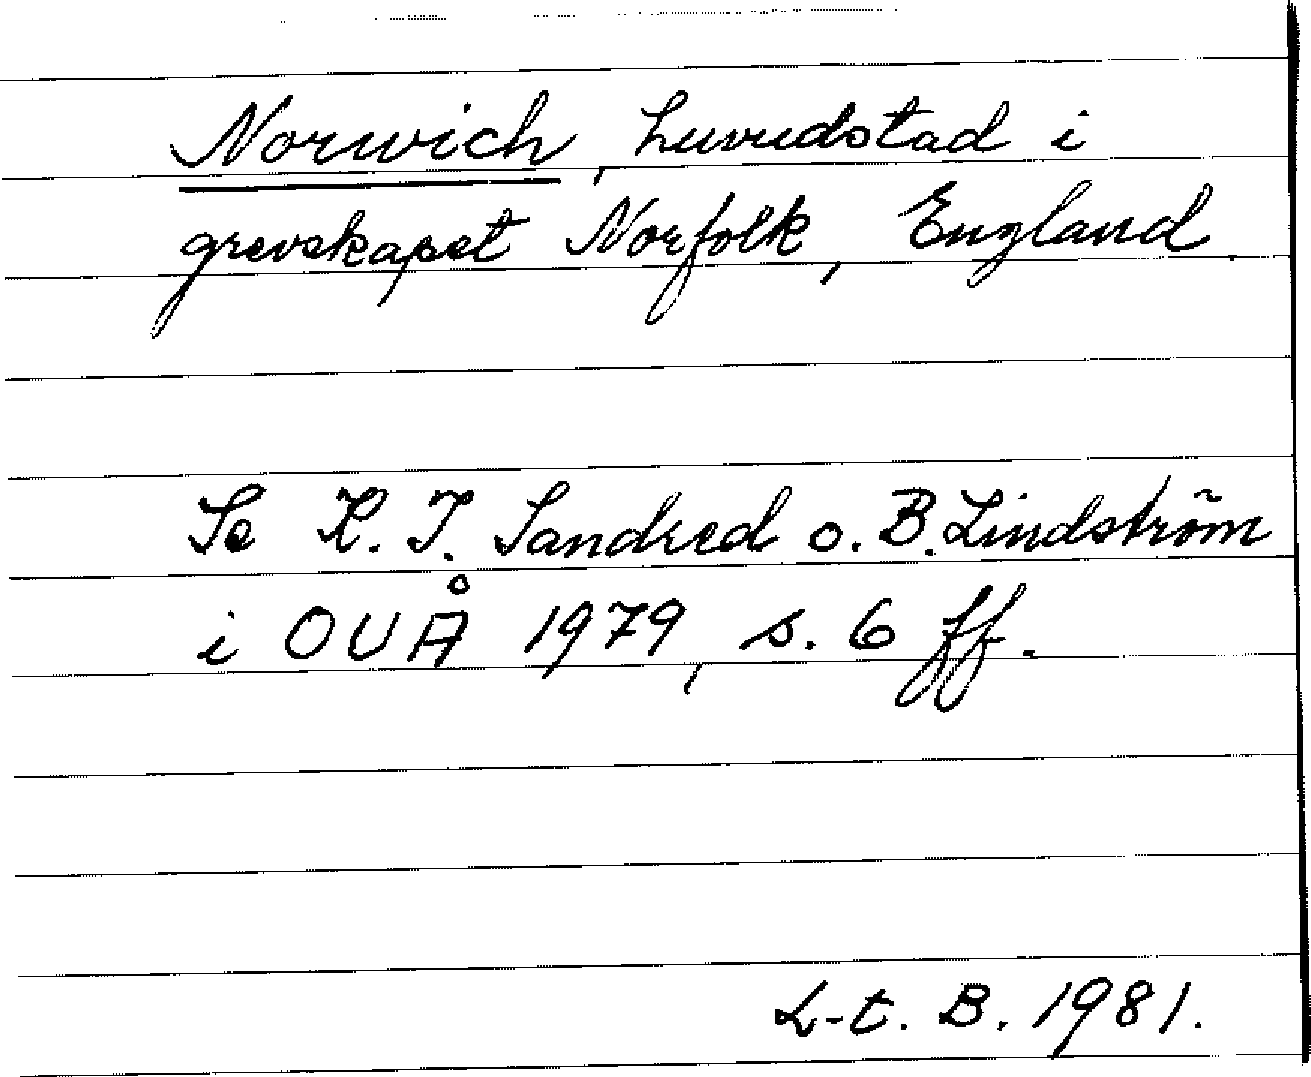 Norwich, huvudstad i
grevskapet Norfolk, England.
Se K. I. Sandred o. B. Lindström
i OUÅ 1979, s. 6 ff.
L-t. B. 1981.